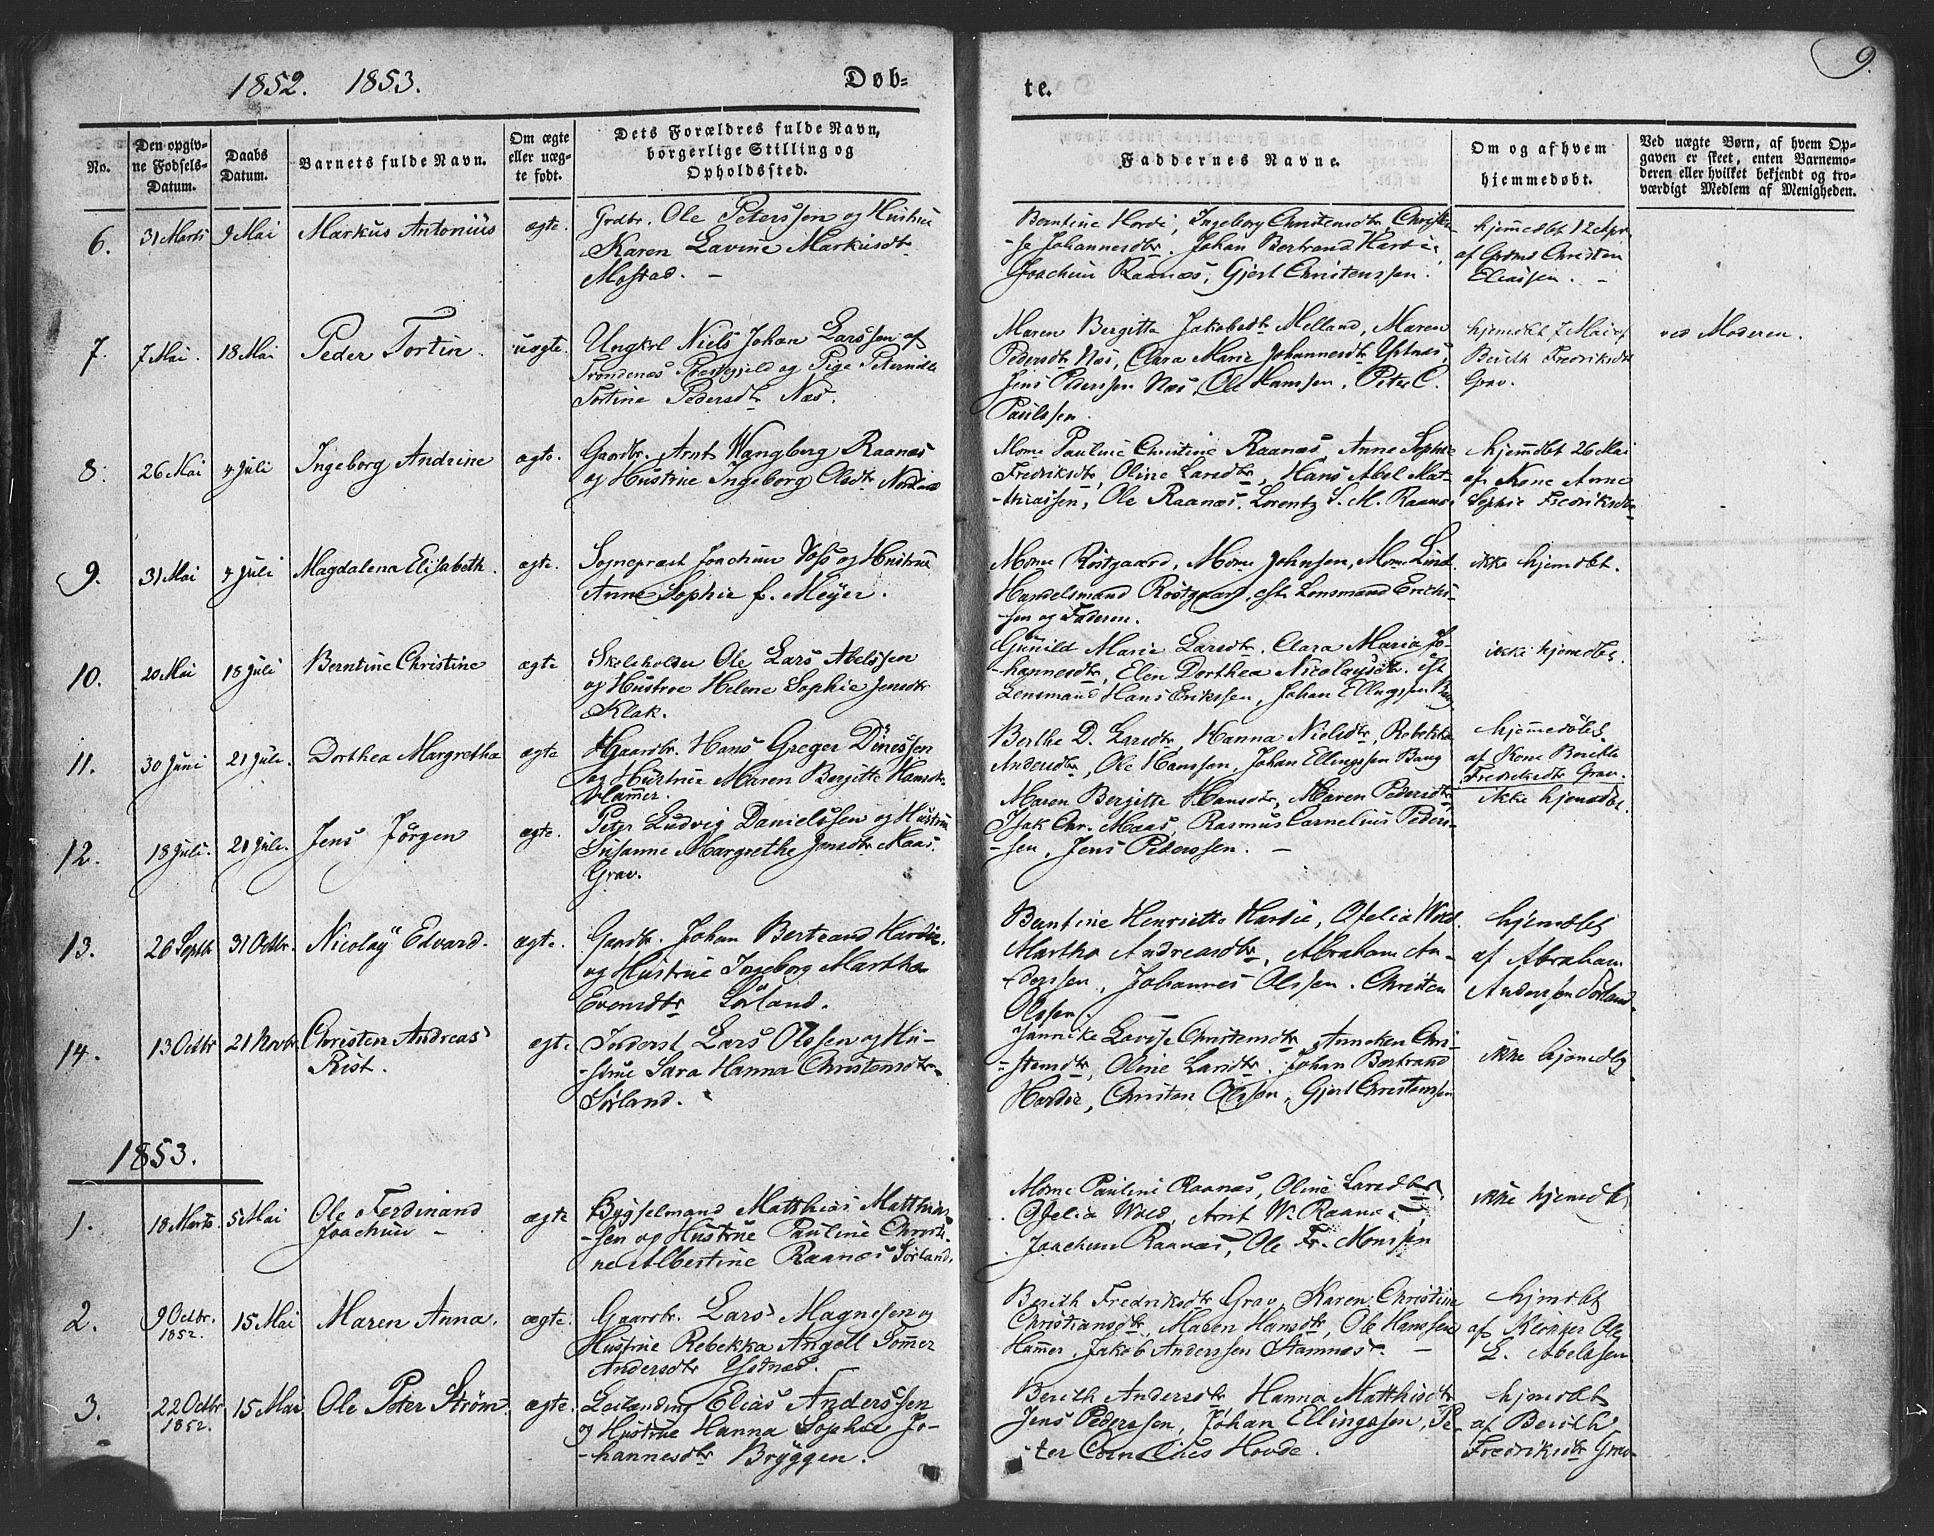 1852. 1853.
Døb=
te.
9.
No.
Den opgiv-
ne Fødsels-
Datum.
Daabs
Datum.
Barnets fulde Navn.
Om ægte
eller uæg-
te født.
Dets Forældres fulde Navn,
borgerlige Stilling og
Opholdssted.
Faddernes Navne.
Om og af hvem
hjemmedøbt.
Ved uægte Børn, af hvem Op-
gaven er skeet, enten Barnemo-
deren eller hvilket bekjendt og tro-
værdigt Medlem af Menigheden.
6. 31 Marts 9 Mai Markus Antonius ægte.
Grdbr. Ole Peterssen og Hustrue
Karen Lavine Markusdtr
Mostad. –
Berntine Hardi, Ingeborg Christensdtr, Christen-
-se Johannesdtr. Johan Bertrand Hardie
Joachim Raanæs, Gjert Christenssen.
hjemmedbt 12 Apr.
af Christen
Eliassen. –
7. 7 Mai. 18 Mai Peder Tortin. uægte.
Ungkrl Niels Johan Larssen af
Trondenæs Præstegjeld og Pige
Tortine Pedersdtr Næs.
Maren Bergitta Jakobsdtr Melland, Maren
Pedersdtr Næs, Clara Marie Johannesdtr Ystnæs,
Jens Pederssen Næs, Ole Hanssen, Peter C.
Paulssen
hjemdbt 7 Mai af
Berith Fredriksdtr
Grav.
ved Moderen.
8. 26 Mai 4 Juli Ingeborg Andrine ægte.
Gaardbr. Arnt Wangberg Raanæs
og Hustrue Ingeborg Olsdtr
Mome Pauline Christine Raanæs, Anne Sophie
Fredriksdtr, Oline Larsdtr, Hans Abel Mat-
-thiassen, Ole Raanæs. Lorentz S. M. Raanæs
hjemdbt 26 Mai
af Kone Anne
Sophie Fredriksdtr
9. 31 Mai 4 Juli Magdalena Elisabeth. ægte.
Sognepræst Joachim Voss og Hustrue
Anne Sophie f. Meyer.
Mome Röstgaard, Mome Johnsen, Mom Lind.
Handelsmand Röstgaard, Lensmand Eriks-
sen og Faderen.
ikke hjemdbt.
10. 20 Mai 18 Juli Berntine Christine ægte
Skoleholder Ole Lars Abelssen
og Hustroe Helene Sophie Jensdtr
Klak.
Gunild Marie Larsdtr. Clara Maria Jo-
hannesdtr, Elen Dorthea Nicolaysdtr.
Lensmand Hans Erikssen, Johan Ellingssen
ikke hjemdbt.
11. 30 Juni 21 Juli. Dorthea Margretha ægte
Gaardbr. Hans Greger Dinessen
og Hustrue Maren Bergitte Hansdtr
Hammer.
Berthe D. Larsdtr, Hanna Nielsdtr, Rebekka
Andersdtr, Ole Hanssen, Johan Ellingssen Bang
hjemmedøbt
af Kone Berithe
Fredriksdtr Grav.
12. 18 Juli. 21 Juli. Jens Jørgen ægte.
Peter Ludvig Danielssen og Hustrue
Susanne Margrethe Jensdtr Maas.
Grav.
Maren Bergitte Hansdtr, Maren Pedersdtr
Isak Chr. Maas, Rasmus Cornelius Peders-
-sen, Jens Pederssen. –
ikke hjemdbt.
13. 26 Septbr 31 Octbr. Nicolay Edvard. ægte.
Gaardbr. Johan Bertrand Hardie.
og Hustrue Ingeborg Martha
Evensdtr Sørland.
Berntine Henriette Hardie, Ofelia Wold
Martha Andreasdtr, Abraham An-
-derssen, Johannes Olssen. Christen
Olssen.
hjemdbt
af Abraham
Anderssen Sørland.
14. 13 Octbr 21 Novbr. Christen Andreas
Rist. ægte
Inderst Lars Olssen og Hu-
-strue Sara Hanna Christensdtr
Sørland.
Jannike Lovise Christensdtr, Anneken Chri-
-stensdtr, Oline Larsdtr. Johan Bertrand
Hardie, Christen Olssen, Gjert Christenssen
ikke hjemdbt
1853.
1. 18 Marts 5 Mai Ole Ferdinand
Joachim – ægte
Bygselmand Matthias Matthias-
-sen og Hustrue Pauline Christi-
ne Albertine Raanæs Sørland.
Mome Pauline Raanæs, Oline Larsdtr,
Ofelia Wold, Arnt W. Raanæs,
Joachim Raanæs, Ole Fr. Monssen
ikke hjemdbt
2. 9 Octbr.
1852. 15 Mai Maren Anna. ægte.
Gaardbr. Lars Magnesen og
Hustrue Rebekka Angell Sommer
Andersdtr Ystnæs.
Berith Fredriksdtr Grav, Karen Christine
Christiansdtr, Maren Hansdtr, Ole Hanssen
Hammer, Jakob Anderssen Stamnæs. –
hjemdbt
af Klokker Ole
L. Abelssen.
3. 22 Octbr
1852. 15 Mai Ole Peter Strøm. ægte.
Leilænding Elias Anderssen
og Hustrue Hanna Sophie Jo-
-hannesdtr Bryggen.
Berith Andersdtr, Hanna Matthisdtr
Jens Pederssen, Johan Ellingssen, Pe-
-ter Cornelius Hovde.
hjemdbt
af Berith
Fredriksdtr Grav